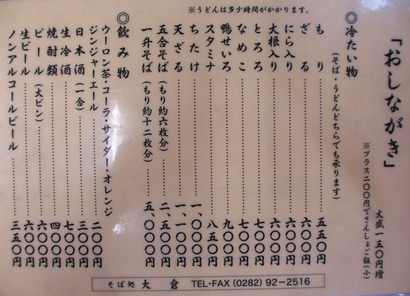 「おしながき」
大盛一五〇円増
※プラス二〇〇円でさんしょご飯(小)
※うどんは多少時間がかかります。
◎冷たい物
(そば・うどんどちらでも承ります)
もり 五五〇円
ざる 六〇〇円
にら入り 六〇〇円
大根入り 六〇〇円
とろろ 七〇〇円
なめこ 七〇〇円
鴨せいろ 九〇〇円
スタミナ 八五〇円
ちたけ 一、〇〇〇円
天ざる 一、〇〇〇円
五合そば(もり約六枚分) 二、五〇〇円
一升そば(もり約十二枚分) 五、〇〇〇円
◎飲み物
ウーロン茶・コーラ・サイダー・オレンジ
ジンジャーエール 二〇〇円
日本酒(一合) 三〇〇円
生冷酒 七〇〇円
焼酎類 四〇〇円
ビール(大ビン) 六〇〇円
生ビール 六〇〇円
ノンアルコールビール 三五〇円
そば処 大倉 TEL・FAX (0282) 92-2516